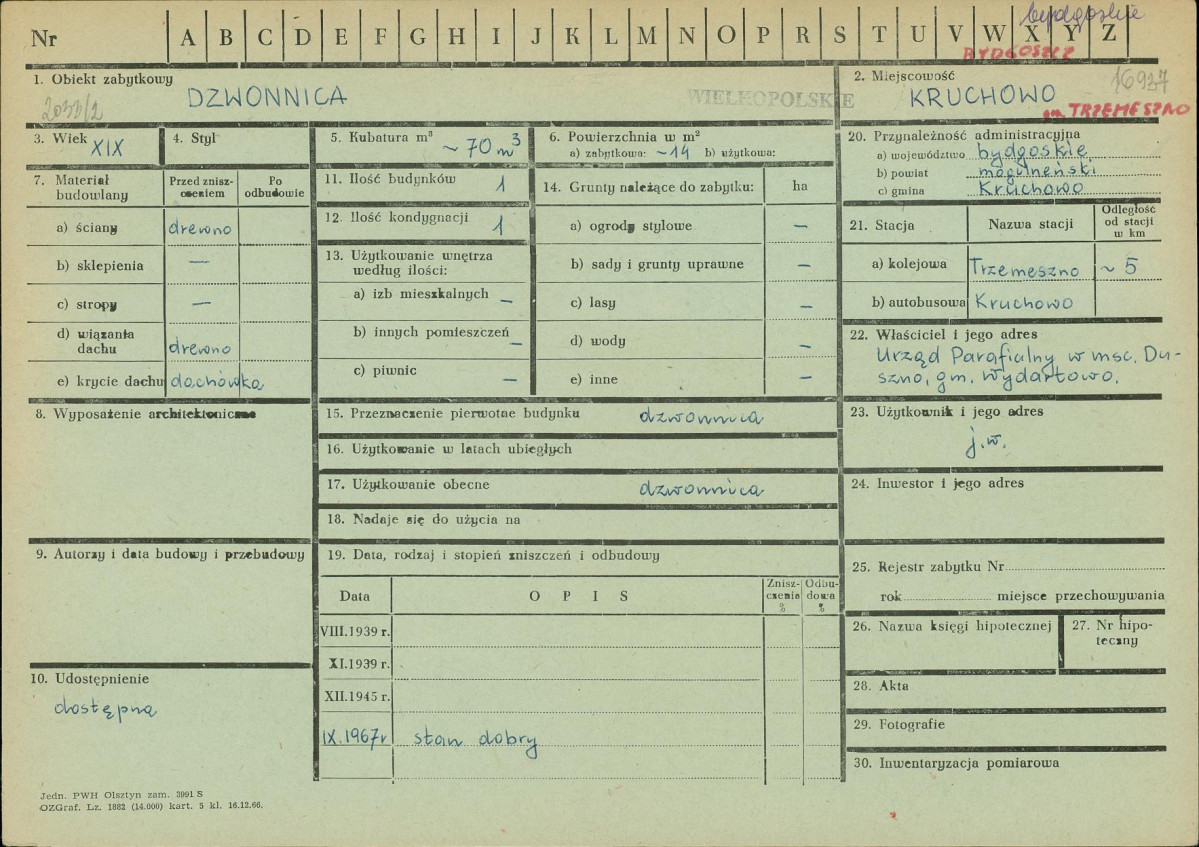 bydgoskie
Nr A B C D E F G H I J K L M N O P R S T U V W X Y Z
BYDGOSZCZ
1. Obiekt zabytkowy
2033/2
DZWONNICA
WIELKOPOLSKIE
2. Miejscowość
16927
KRUCHOWO
gm. TRZEMESZNO
3. Wiek XIX
4. Styl
5. Kubatura m³
~ 70 m³
6. Powierzchnia w m²
a) zabytkowa: ~14 b) użytkowa:
20. Przynależność administracyjna
a) województwo bydgoskie
b) powiat mogileński
c) gmina Kruchowo
7. Materiał budowlany
Przed znisz-
czeniem
Po
odbudowie
a) ściany drewno
b) sklepienia —
c) stropy —
d) wiązania
dachu drewno
e) krycie dachu dachówka
11. Ilość budynków 1
12. Ilość kondygnacji 1
13. Użytkowanie wnętrza
według ilości:
a) izb mieszkalnych —
b) innych pomieszczeń —
c) piwnic —
14. Grunty należące do zabytku: ha
a) ogrody stylowe —
b) sady i grunty uprawne —
c) lasy —
d) wody —
e) inne —
21. Stacja
Nazwa stacji
Odległość
od stacji
w km
a) kolejowa Trzemeszno ~ 5
b) autobusowa Kruchowo
22. Właściciel i jego adres
Urząd Parafialny w msc. Du-
szno, gm. Wydartowo.
8. Wyposażenie architektoniczne
15. Przeznaczenie pierwotne budynku dzwonnica
16. Użytkowanie w latach ubiegłych
17. Użytkowanie obecne dzwonnica
18. Nadaje się do użycia na
23. Użytkownik i jego adres
j.w.
24. Inwestor i jego adres
9. Autorzy i data budowy i przebudowy
19. Data, rodzaj i stopień zniszczeń i odbudowy
Data
O P I S
Znisz-
czenia
%
Odbu-
dowa
%
VIII.1939 r.
XI.1939 r.
XII.1945 r.
IX.1967r stan dobry
25. Rejestr zabytku Nr
rok miejsce przechowywania
26. Nazwa księgi hipotecznej
27. Nr hipo-
teczny
10. Udostępnienie
dostępna
28. Akta
29. Fotografie
30. Inwentaryzacja pomiarowa
Jedn. PWH Olsztyn zam. 3991 S
OZGraf. Lz. 1882 (14.000) kart. 5 kl. 16.12.66.